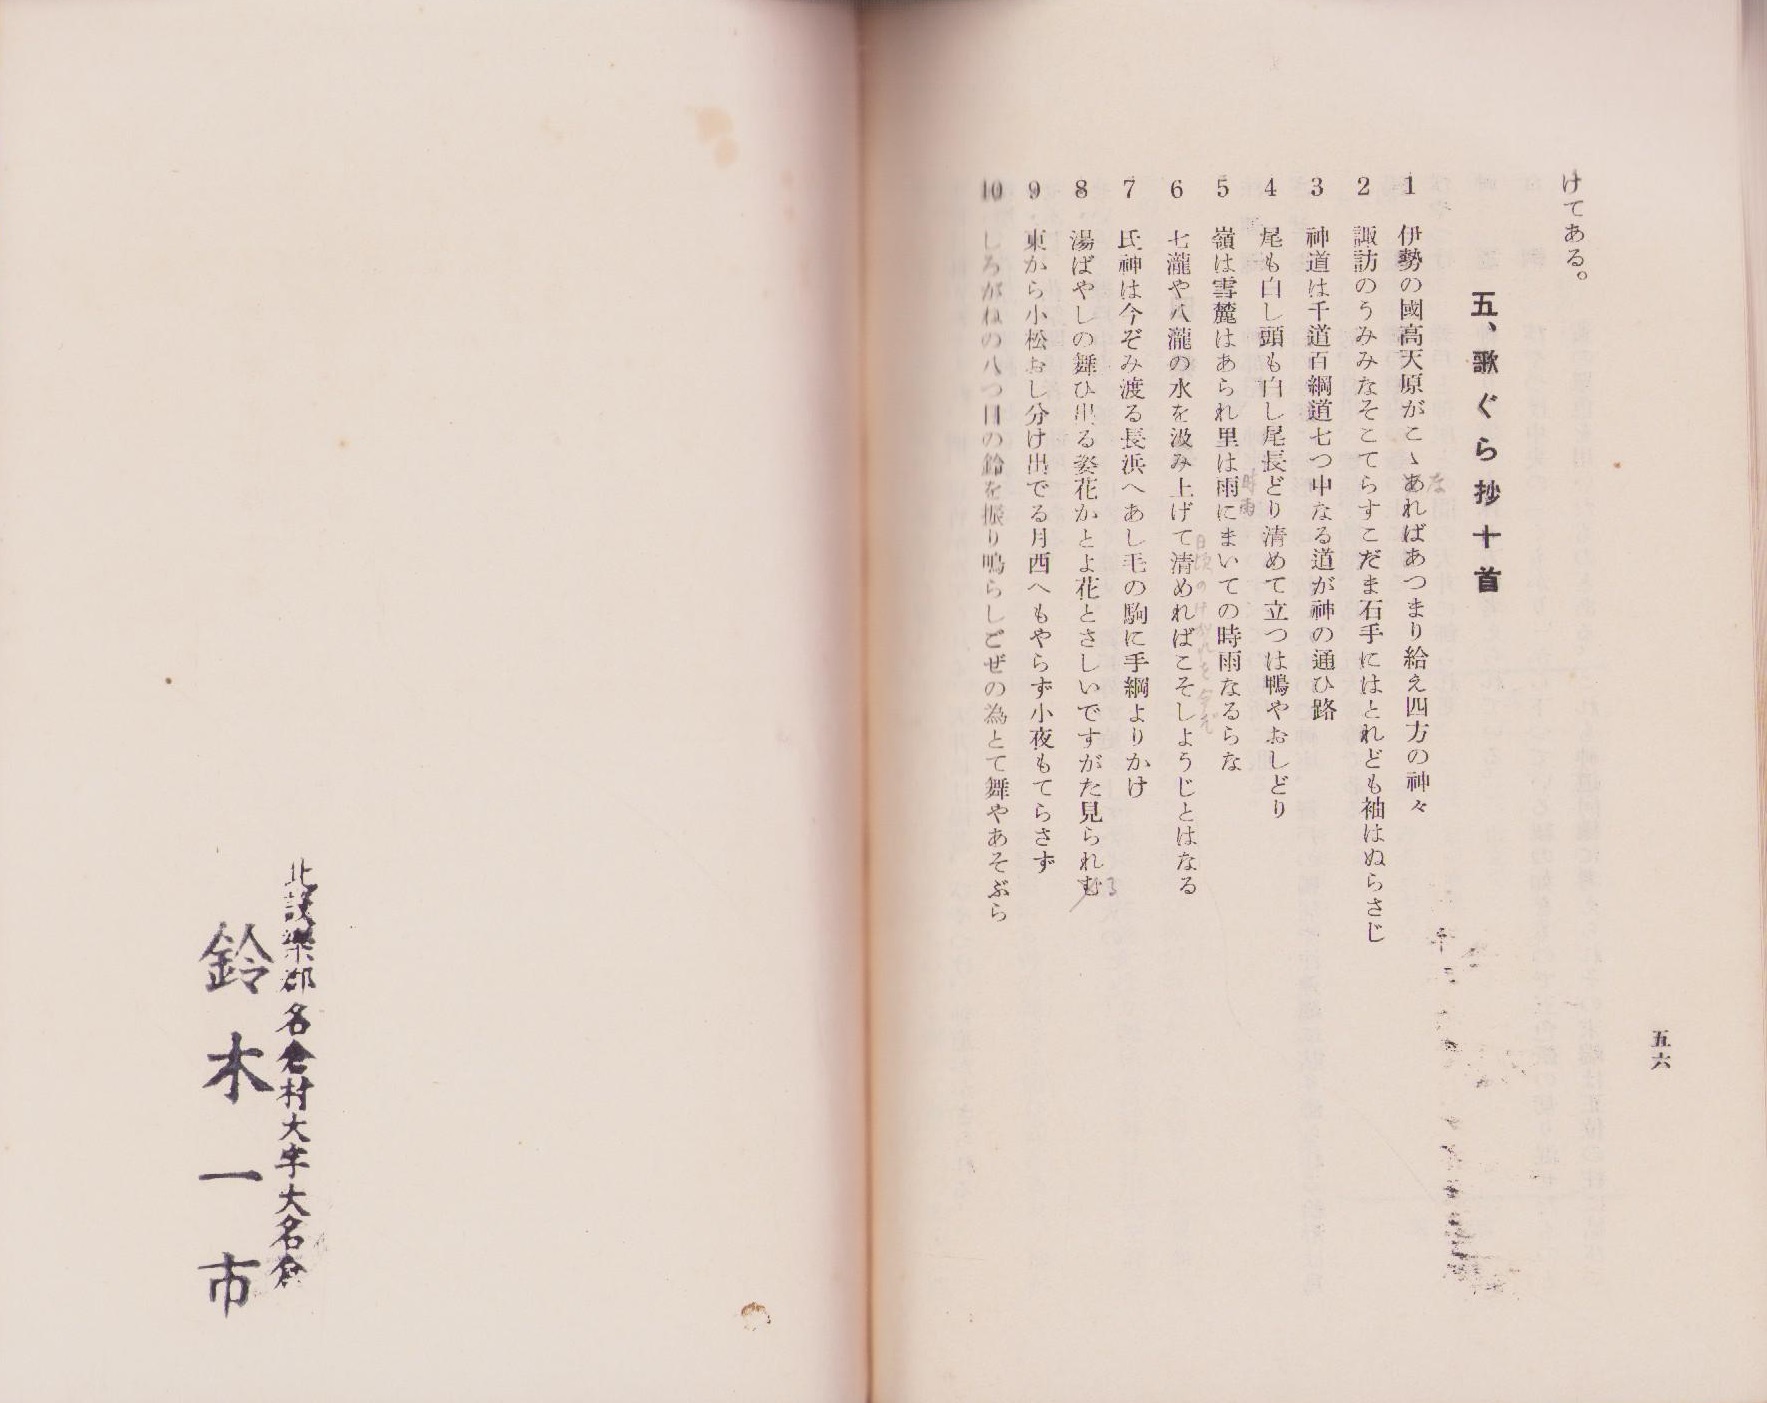 けてある。
五、歌ぐら抄十首
1 伊勢の國高天原がこゝあればあつまり給え四方の神々
な
2 諏訪のうみみなそこてらすこだま石手にはとれども袖はぬらさじ
3 神道は千道百綱道七つ中なる道が神の通ひ路
4 尾も白し頭も白し尾長どり清めて立つは鴨やおしどり
5 嶺は雪麓はあられ里は雨にまいての時雨なるらな
時雨
6 七瀧や八瀧の水を汲み上げて清めればこそしようじとはなる
日頃のけがれを今ぞ
7 氏神は今ぞみ渡る長浜へあし毛の駒に手綱よりかけ
8 湯ばやしの舞ひ出る姿花かとよ花とさしいですがた見られむ
る
9 東から小松おし分け出でる月西へもやらず小夜もてらさず
10 しろがねの八つ目の鈴を振り鳴らしごぜの為とて舞やあそぶら
五六
北設楽郡名倉村大字大名倉
鈴木一市